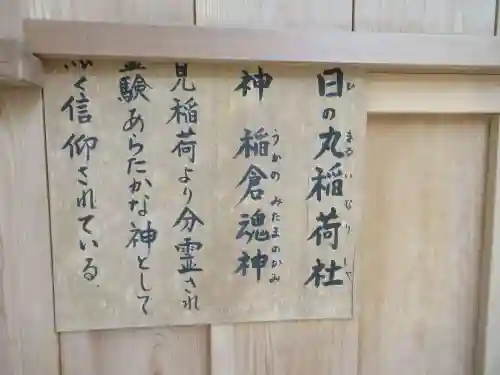 日の丸稲荷社
ひ まる いなり しゃ
神 稲倉魂神
うかの みたまのかみ
見稲荷より分霊され
験あらたかな神として
く信仰されている。